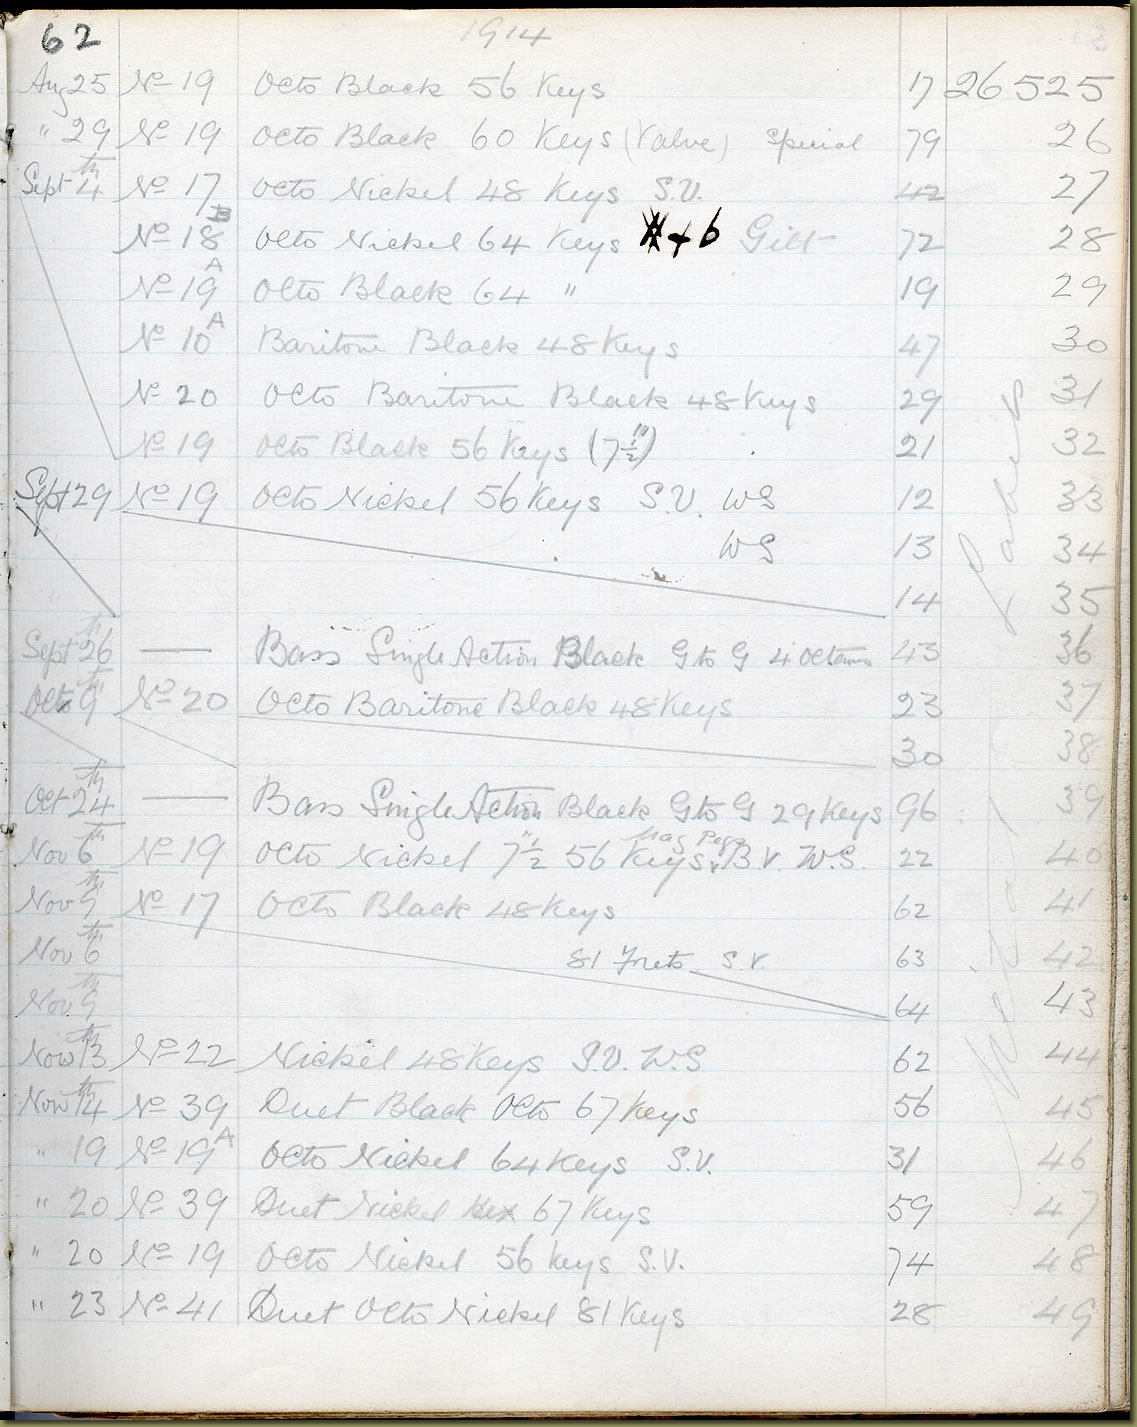 62 1914
Aug 25 No 19 Octo Black 56 Keys 17 26525
" 29 No 19 Octo Black 60 Keys (Valve) Special 79 26
Sept 4th No 17 Octo Nickel 48 Keys S.V. 42 27
No 18B Octo Nickel 64 Keys # + b Gilt 72 28
No 19A Octo Black 64 " 19 29
No 10A Baritone Black 48 Keys 47 30
No 20 Octo Baritone Black 48 Keys 29 31
No 19 Octo Black 56 Keys (7½") 21 32
Sept 29 No 19 Octo Nickel 56 Keys S.V. WS 12 33
WS 13 34
14 35
Sept 26th — Bass Single Action Black G to G 4 Octaves 43 36
Octo 9th No 20 Octo Baritone Black 48 Keys 23 37
30 38
Oct 24th — Bass Single Action Black G to G 29 Keys 96 39
Nov 6th No 19 Octo Nickel 7½" 56 Keys B.V. W.S. 22 40
Nov 9th No 17 Octo Black 48 Keys 62 41
Nov 6th 81 Frets S.V. 63 42
Nov 9th 64 43
Nov 13th No 22 Nickel 48 Keys S.V. W.S 62 44
Nov 14th No 39 Duet Black Octo 67 Keys 56 45
" 19 No 19A Octo Nickel 64 Keys S.V. 31 46
" 20 No 39 Duet Nickel Hex 67 Keys 59 47
" 20 No 19 Octo Nickel 56 Keys S.V. 74 48
" 23 No 41 Duet Octo Nickel 81 Keys 28 49